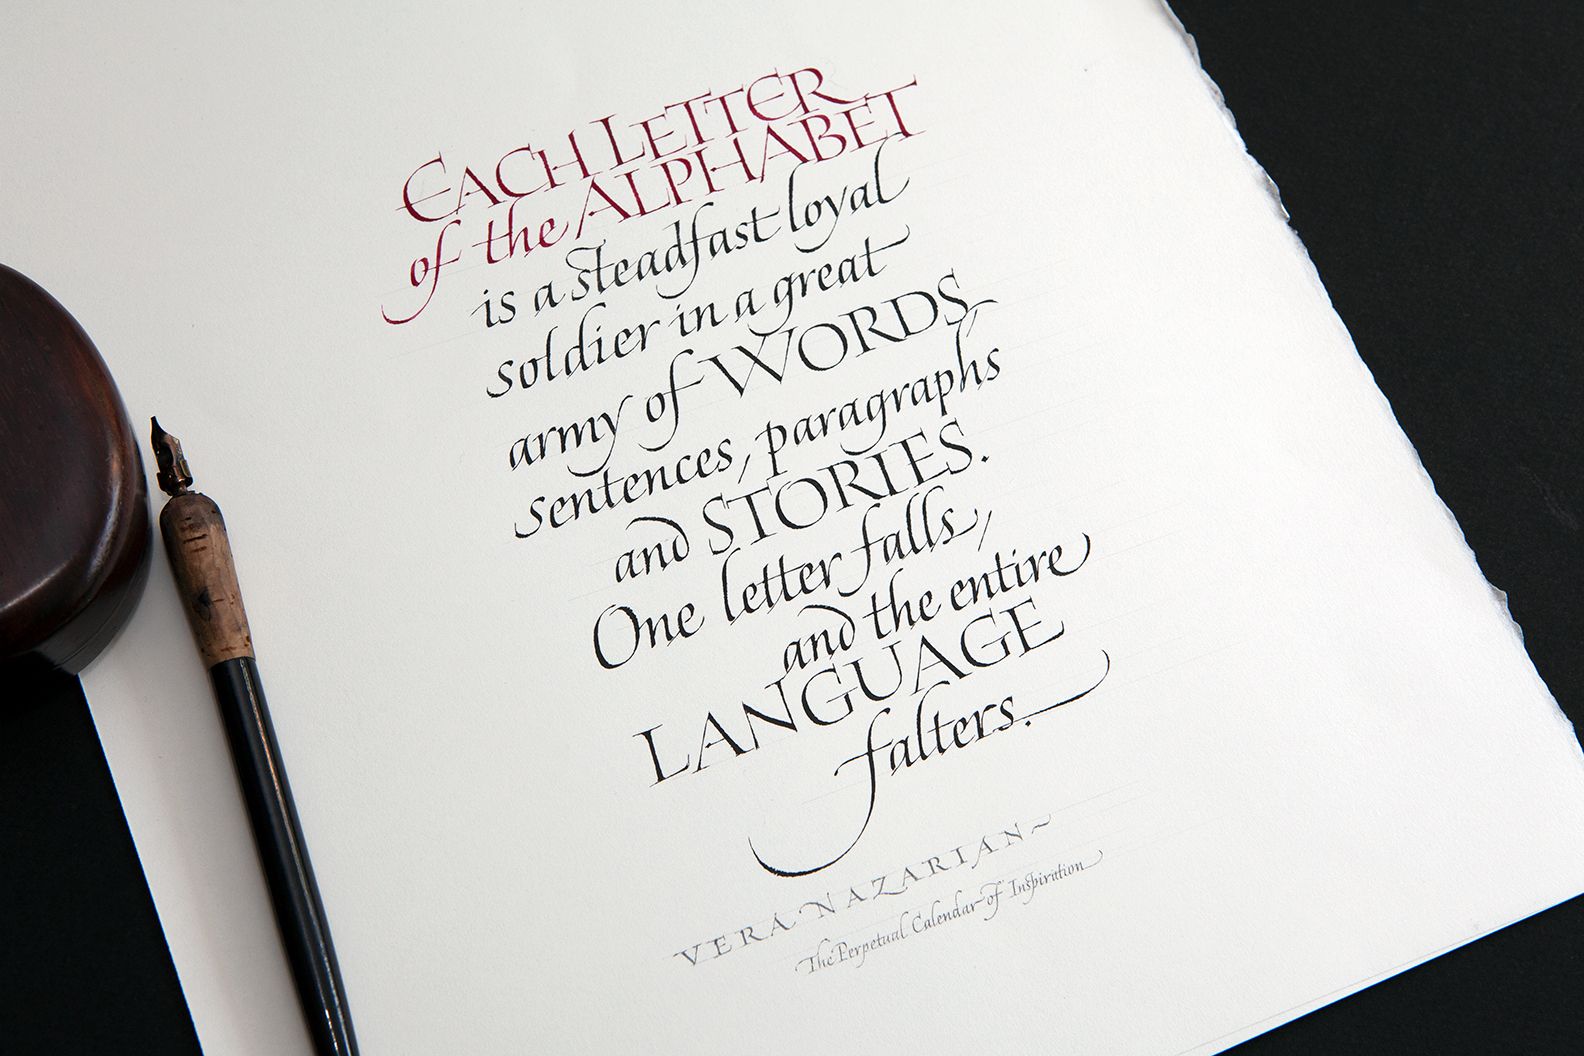 EACH LETTER
of the ALPHABET
is a steadfast loyal
soldier in a great
army of WORDS,
sentences, paragraphs
and STORIES.
One letter falls,
and the entire
LANGUAGE
falters.
VERA NAZARIAN ~
The Perpetual Calendar of Inspiration